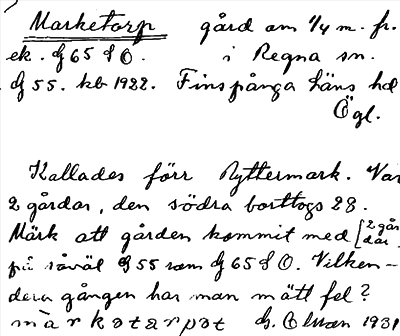 Marketorp gård om 1/4 m. fr.
ek. G 65 S O. i Regna sn.
G 55. kb 1922. Finspånga läns hd
Ögl.
Kallades förr Ryttermark. Var
2 gårdar, den södra borttogs 28.
Märk att gården kommit med [2 går
dar
på såväl G 55 som G 65 S O. Vilken-
dera gången har man mätt fel?
Olsson 1931